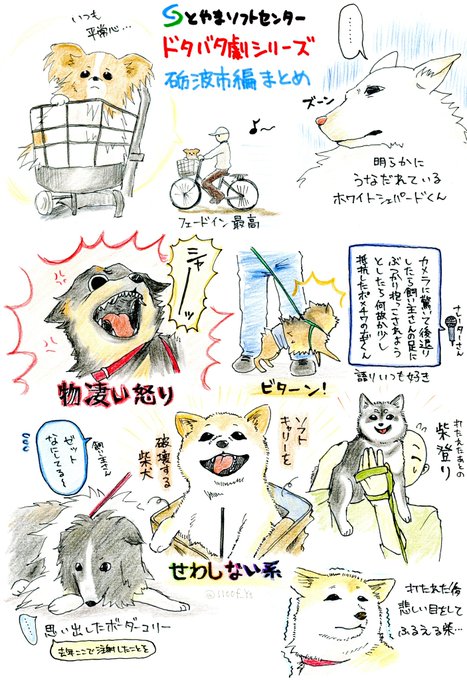 とやまソフトセンター
ドタバタ劇シリーズ
砺波市編まとめ
いつも
平常心…
……
ズーン
明らかに
うなだれている
ホワイトシェパードくん
フェードイン最高
シャーーッ
物凄い怒り
ビターン!
ナレーターさん
カメラに驚いて後退り
したら飼い主さんの足に
ぶつかり抱っこされよう
としたら何故か少し
抵抗したポメチワのボンくん
語りいつも好き
飼い主さん
ゼット
なにしてる〜
ソフト
キャリーを
破壊する
柴犬
せわしない系
うたれたあとの
柴登り
……
思い出したボーダーコリー
去年ここで注射したことを
うたれた後
悲しい目をして
ふるえる柴…